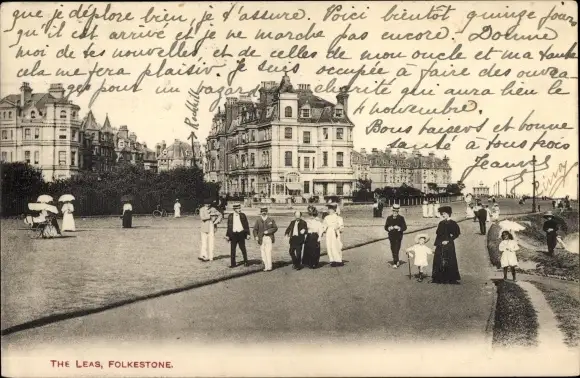 que je déplore bien, je t'assure. Voici bientôt quinze jours
qu'il est arrivé et je ne marche pas encore. Donne
moi de tes nouvelles et de celles de mon oncle et ma tante
cela me fera plaisir. Je suis occupée à faire des ouvra
ges pour un bazar de charité qui aura lieu le
4 novembre.
Bons baisers et bonne
santé à tous trois
Jeanne
THE LEAS, FOLKESTONE.